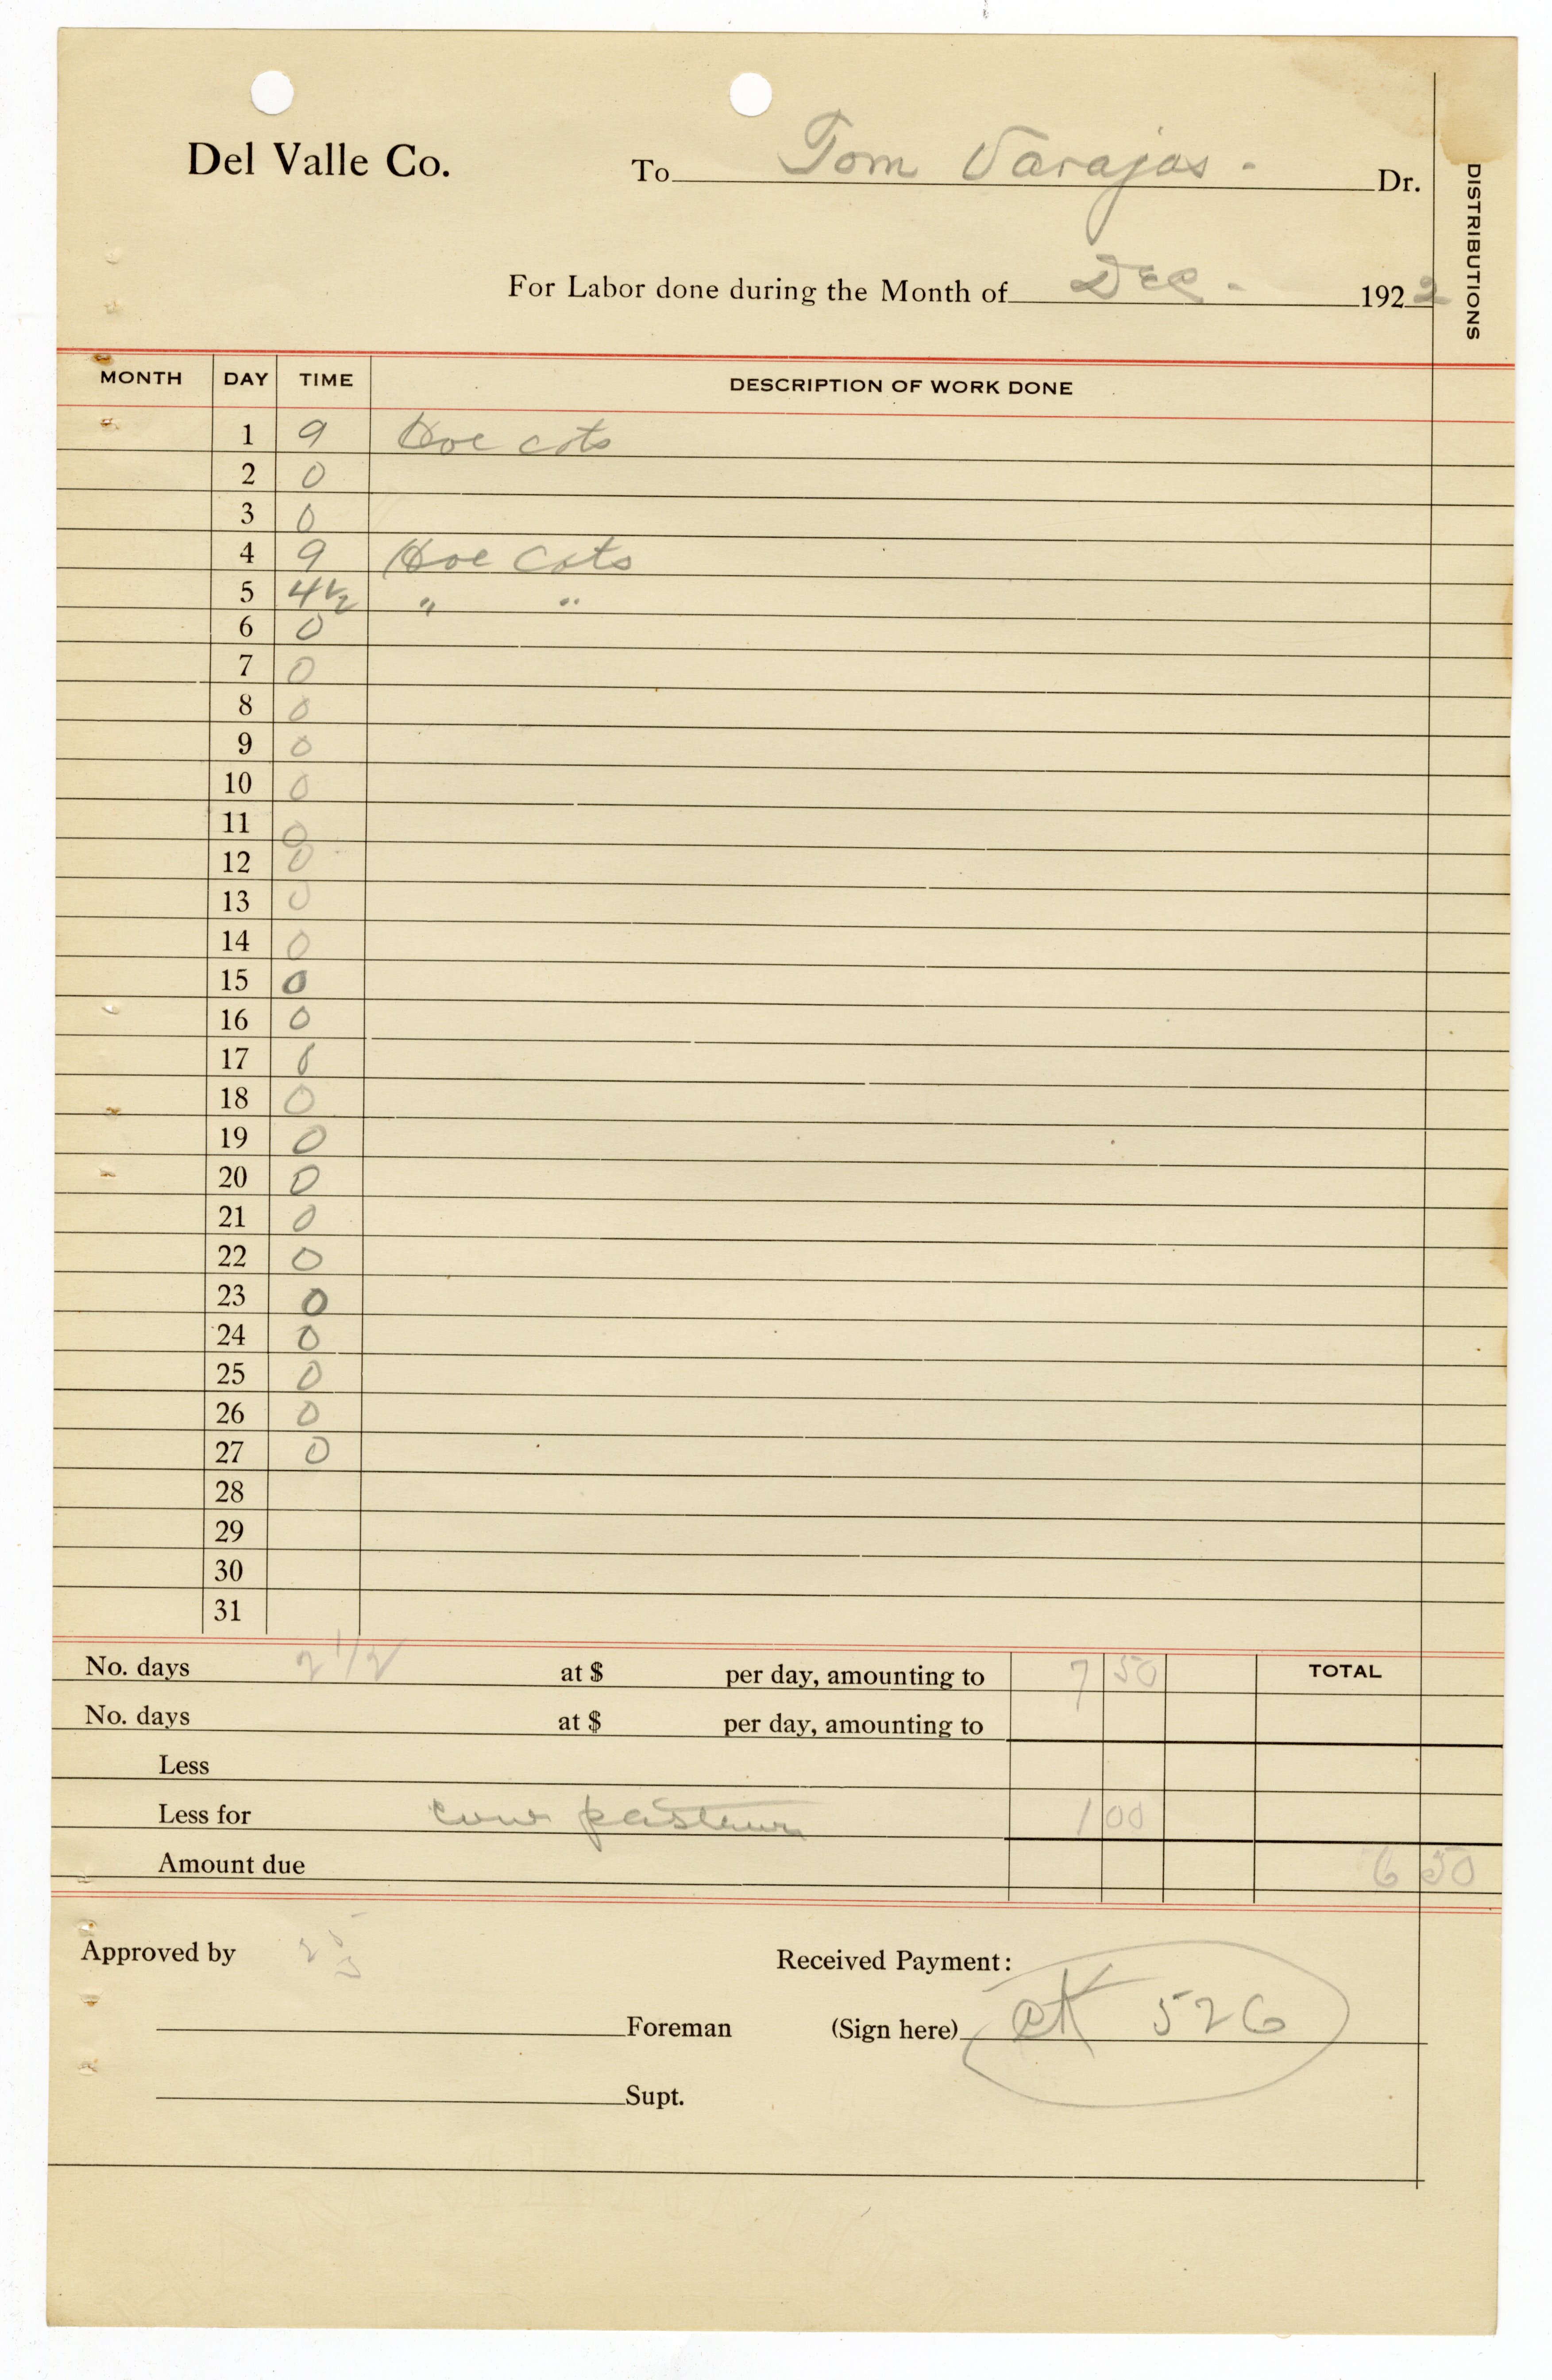 Del Valle Co. To Tom Varajas - Dr.
DISTRIBUTIONS
For Labor done during the Month of Dec - 1922
MONTH DAY TIME DESCRIPTION OF WORK DONE
1 9 Hoe cots
2 0
3 0
4 9 Hoe Cots
5 4 1/2 " "
6 0
7 0
8 0
9 0
10 0
11 0
12 0
13 0
14 0
15 0
16 0
17 0
18 0
19 0
20 0
21 0
22 0
23 0
24 0
25 0
26 0
27 0
28
29
30
31
No. days 2 1/2 at $ per day, amounting to 7 50 TOTAL
No. days at $ per day, amounting to
Less
Less for cow pasture 1 00
Amount due 6 50
Approved by Received Payment:
Foreman (Sign here) CK 526
Supt.